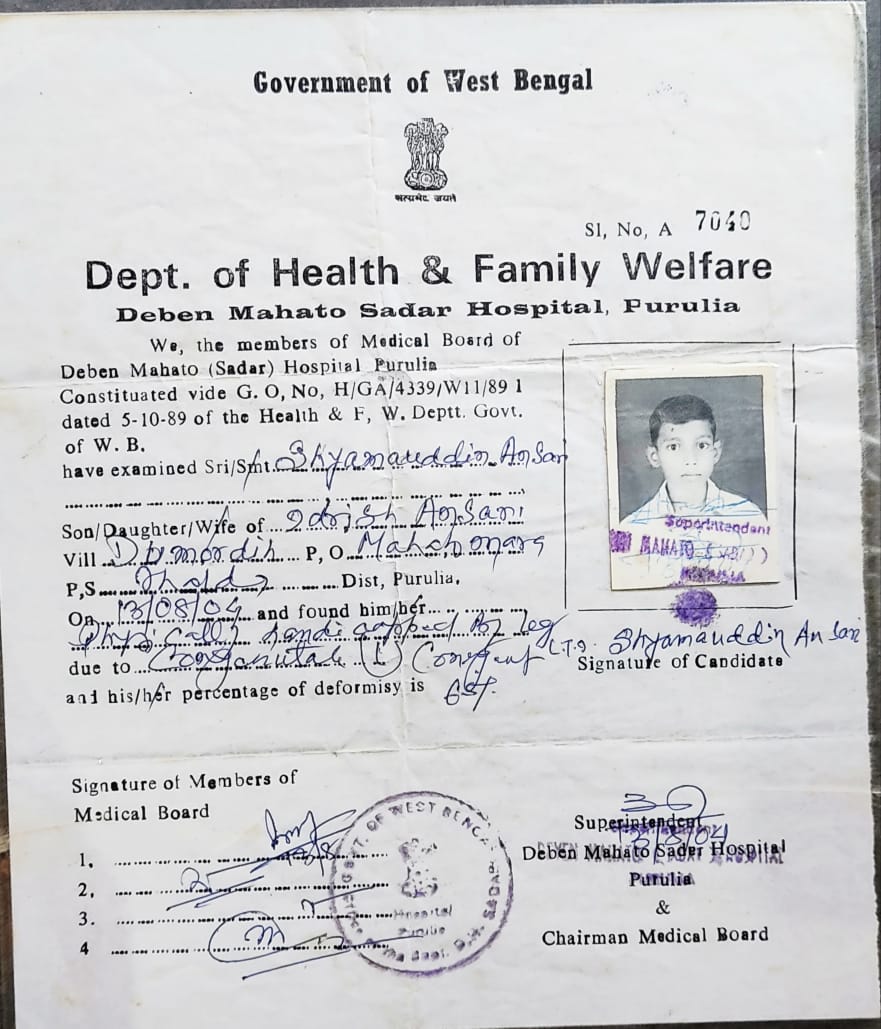 Government of West Bengal
सत्यमेव जयते
Sl, No, A 7040
Dept. of Health & Family Welfare
Deben Mahato Sadar Hospital, Purulia
We, the members of Medical Board of
Deben Mahato (Sadar) Hospital Purulia
Constituated vide G. O, No, H/GA/4339/W11/89 1
dated 5-10-89 of the Health & F, W. Deptt. Govt.
of W. B.
have examined Sri/Smt. Shyamauddin Ansari
Son/Daughter/Wife of Idrish Ansari
Vill Dumardih P, O Mahchomara
P,S Jhalda Dist, Purulia,
On 13/08/04 and found him/her
Physically handicapped By leg
due to (L)
and his/her percentage of deformisy is
Superintendent
MAHATO
L.T.I. Shyamauddin Ansari
Signature of Candidate
Signature of Members of
Medical Board
1,
2,
3.
4
GOVT. OF WEST BENGAL
Hospital
Superintendent
13/8/04
Deben Mahato Sadar Hospital
Purulia
&
Chairman Medical Board